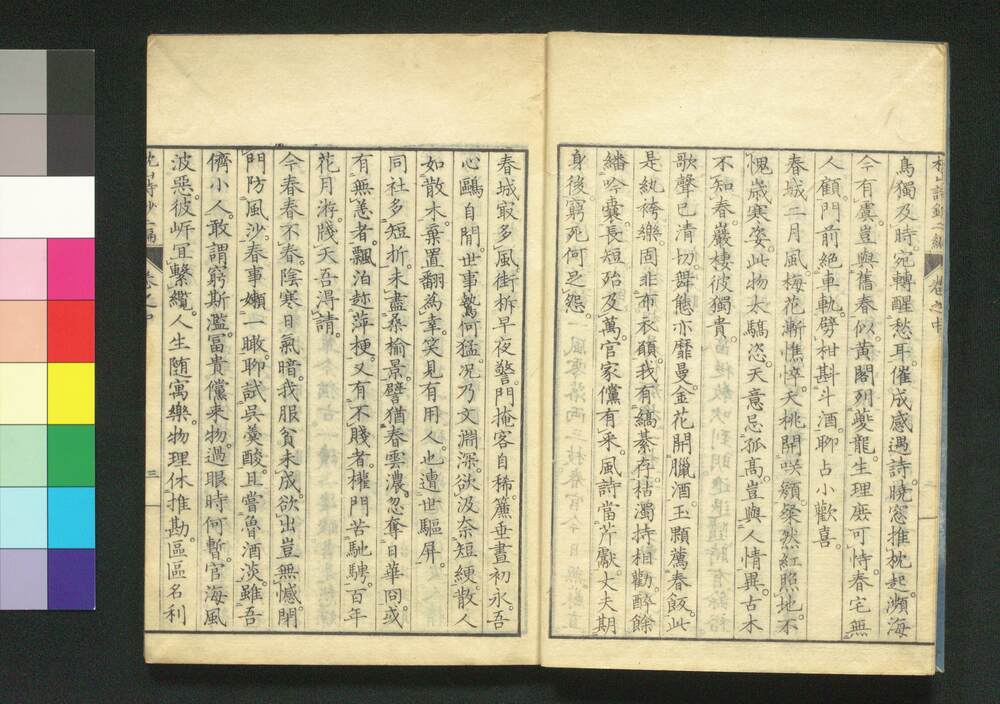 鳥獨及時宛轉醒愁耳催成感遇詩曉窓推枕起瀕海
今有虞豈與舊春似黃閣列夔龍生理庶可恃春宅無
人顧門前絶車軌劈柑斟斗酒聊占小歡喜
春城二月風梅花漸憔悴夭桃開咲顏粲然紅照地不
愧歲寒姿此物太驕恣天意忌孤高豈與人情異古木
不知春巖棲彼獨貴
歌聲已清切舞態亦靡曼金花開臘酒玉顆薦春飯此
是紈袴樂固非布衣願我有縞綦存枯濁持相勸醉餘
繙吟囊長短殆及萬官家儻有采風詩當芹獻大夫期
身後窮死何足怨
春城寂多風街柝早夜警門掩客自稀簾垂晝初永吾
心鷗自閒世事鷙何猛况乃文淵深欲汲奈短綆散人
如散木棄置翻為幸笑見有用人也遭世驅屏
同社多短折未盡桑榆景譬猶春雲濃忽奪日華冏或
有無恙者飄泊趂萍梗又有不賤者權門苦馳騁百年
花月游賤天吾淂請
今春春不春陰寒日氣暗我服貧未成欲出豈無憾閉
門防風沙春事嬾一瞰聊試吳羹酸且嘗魯酒淡雖吾
儕小人敢謂窮斯濫冨貴儻来物過眼時何暫官海風
波惡彼岍冝繫纜人生随寓樂物理休推勘區區名利
枕山詩鈔二編
卷之中
三